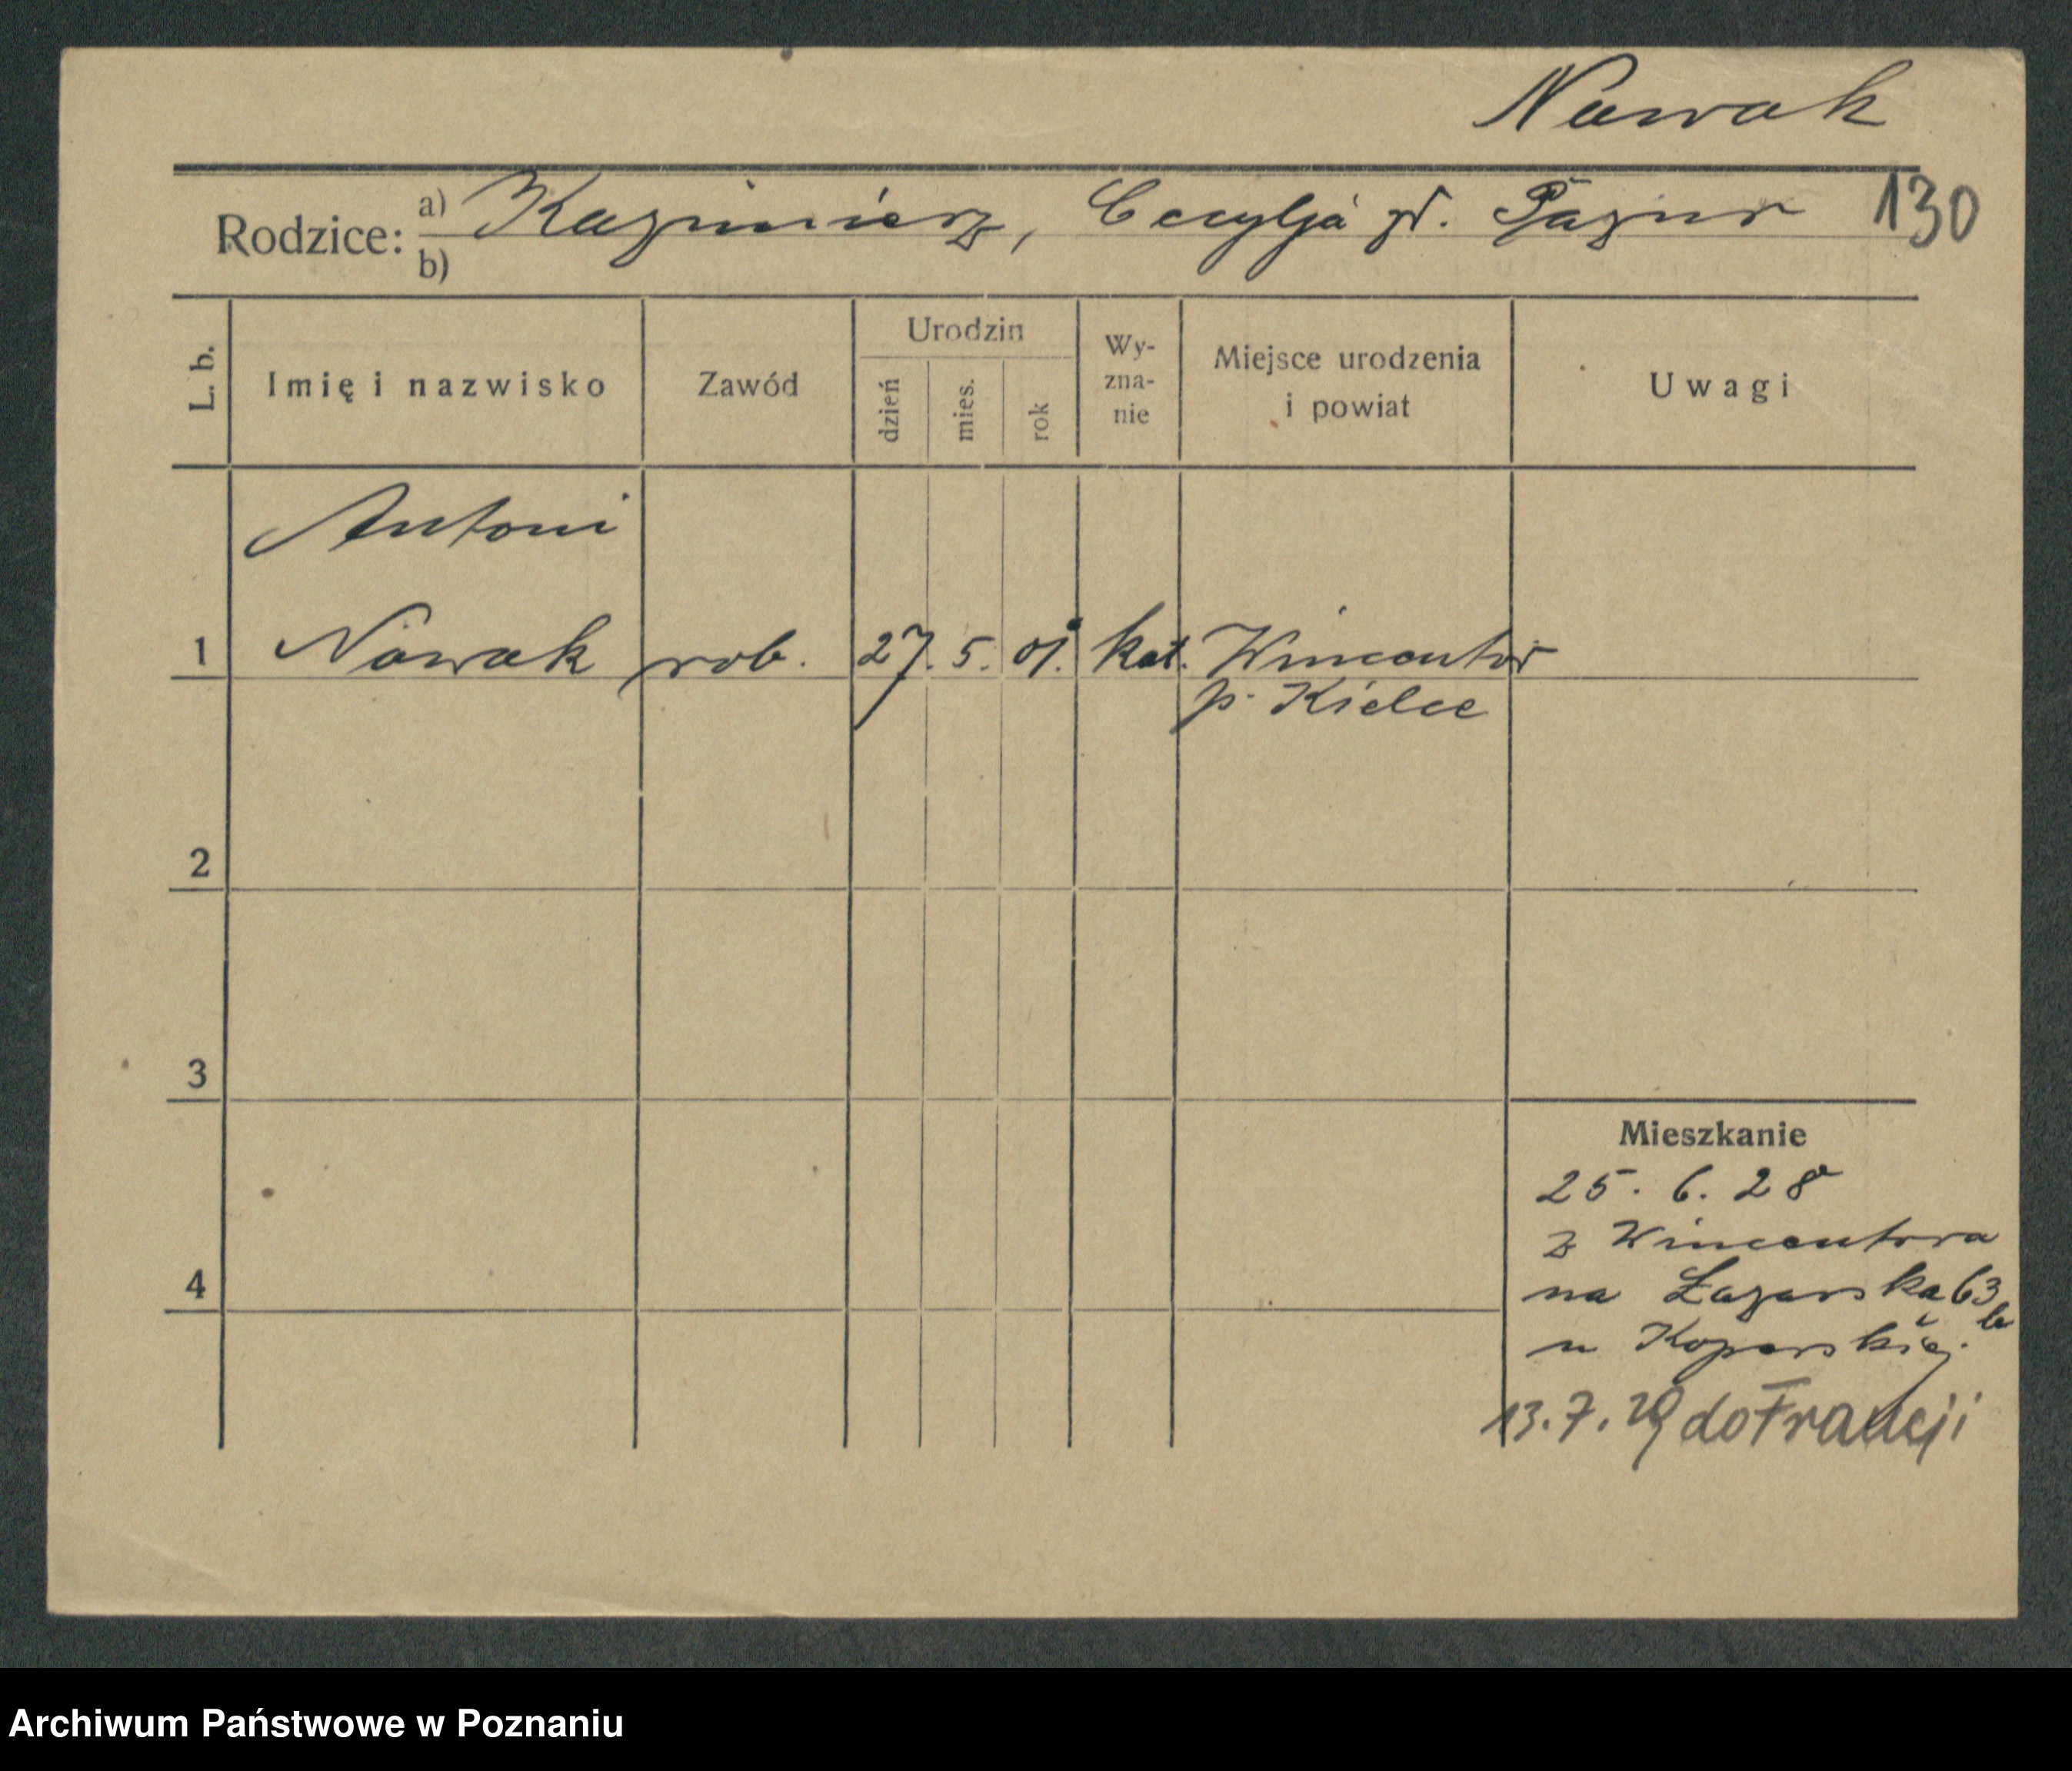 Nowak
Rodzice: a) Kazimierz, Cecylja zd. Pazur 130
b)
L. b. Imię i nazwisko Zawód Urodzin dzień mies. rok Wy-zna-nie Miejsce urodzenia i powiat Uwagi
Antoni
1 Nowak rob. 27. 5. 01. kat. Wincentów
p. Kielce
2
3
Mieszkanie
25. 6. 28
z Wincentowa
4 na Łazarska 63b
u Koperskiej.
13.7.29 do Francji
Archiwum Państwowe w Poznaniu